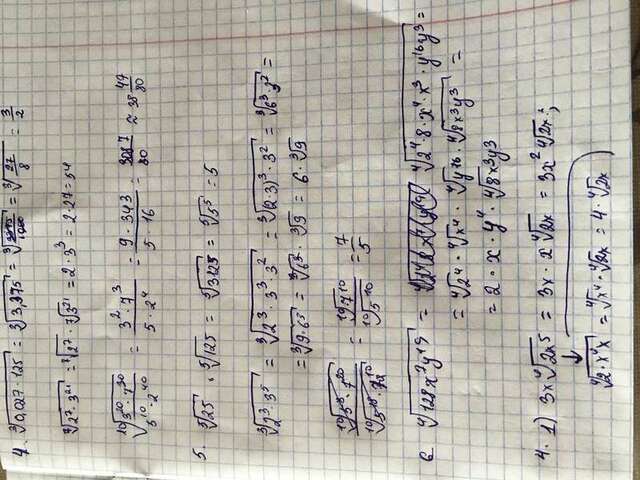 4. ∛(0,027 · 125) = ∛3,375 = ∛(3375/1000) = ∛(27/8) = 3/2
⁷√(2⁷ · 3²¹) = ⁷√2⁷ · ⁷√3²¹ = 2 · 3³ = 2 · 27 = 54
¹⁰√((3²⁰ · 7³⁰)/(5¹⁰ · 2⁴⁰)) = (3² · 7³)/(5 · 2⁴) = (9 · 343)/(5 · 16) = 3087/80 ≈ 38 47/80
5. ⁵√25 · ⁵√125 = ⁵√3125 = ⁵√5⁵ = 5
∛(2³ · 3⁵) = ∛(2³ · 3³ · 3²) = ∛((2 · 3)³ · 3²) = ∛(6³ · 3²) =
= ∛(9 · 6³) = ∛6³ · ∛9 = 6 · ∛9
¹⁰√(5⁸ · 7²⁰)/¹⁰√(5¹⁸ · 7¹⁰) = ¹⁰√7¹⁰/¹⁰√5¹⁰ = 7/5
6 ⁴√(128x⁷y¹⁹) = ⁴√(2⁴ · 8 · x⁴ · x³ · y¹⁶y³) =
= ⁴√2⁴ · ⁴√x⁴ · ⁴√y¹⁶ · ⁴√(8x³y³) =
= 2 · x · y⁴ · ⁴√(8x³y³)
4. 1) 3x ⁴√(2x⁵) = 3x · x ⁴√(2x) = 3x² ⁴√(2x);
⁴√(2 · x⁴x) = ⁴√x⁴ · ⁴√2x = 4 · ⁴√2x